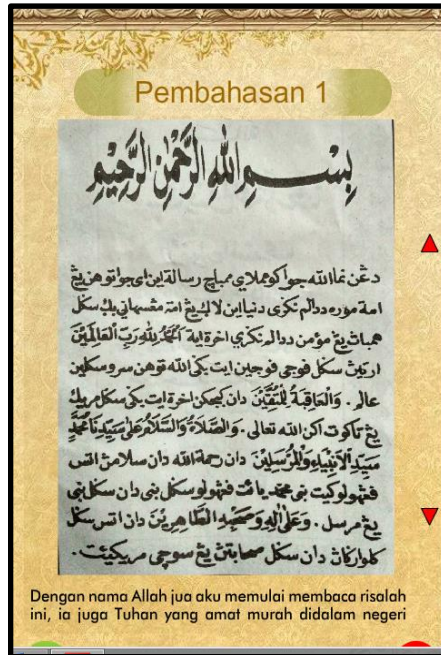 Pembahasan 1
بِسْمِ اللهِ الرَّحْمٰنِ الرَّحِيْمِ
دڠن نما الله جوا كو مملاي ممباچ رسالة اين اي جوا توهن يڠ
امة موره ددالم نڬري دنيا اين لاڬي يڠ امة مڠسيهاني بڬ سكل
همباث يڠ مؤمن ددالم نكري اخرة اية اَلْحَمْدُ لِلّٰهِ رَبِّ الْعَالَمِيْنَ
ارتيث سكل فوجي فوجين ايت بكي الله توهن سرو سكلين
عالم . وَالْعَاقِبَةُ لِلْمُتَّقِيْنَ دان كبجكن اخرة ايت بكي سكل مريك
يڠ تاكوت اكن الله تعالى . وَالصَّلَاةُ وَالسَّلَامُ عَلَى سَيِّدِنَا مُحَمَّدٍ
سَيِّدِ الْاَنْبِيَاءِ وَالْمُرْسَلِيْنَ دان رحمة الله دان سلامن اتس
فڠهولو كيت نبي محمد يائت فڠهولو سكل نبي دان سكل نبي
يڠ مرسل . وَعَلَى اٰلِهِ وَصَحْبِهِ الطَّاهِرِيْنَ دان اتس سكل
كلوارڬاث دان سكل صحابتن يڠ سوچي مريكئيت .
Dengan nama Allah jua aku memulai membaca risalah
ini, ia juga Tuhan yang amat murah didalam negeri